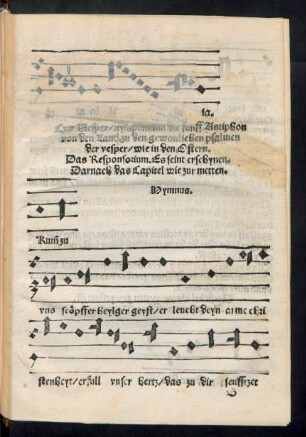 la.
Zur Vesper / nympt man die fünff Antiphon
von den Laudn zu den gewonlichen psalmen
der vesper / wie in den Ostern.
Das Responsorium. Es seint erschynen.
Darnach das Capitel wie zur metten.
Hymnus.
Kum zu
vns schöpffer heylger geyst / er leucht deyn arme chri
stenheyt / erfüll vnser hertz / das zu dir seufftzet